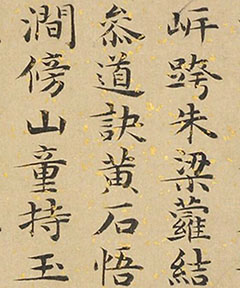 岍跨朱梁蘿結
叅道訣黃石悟
澗傍山童持玉